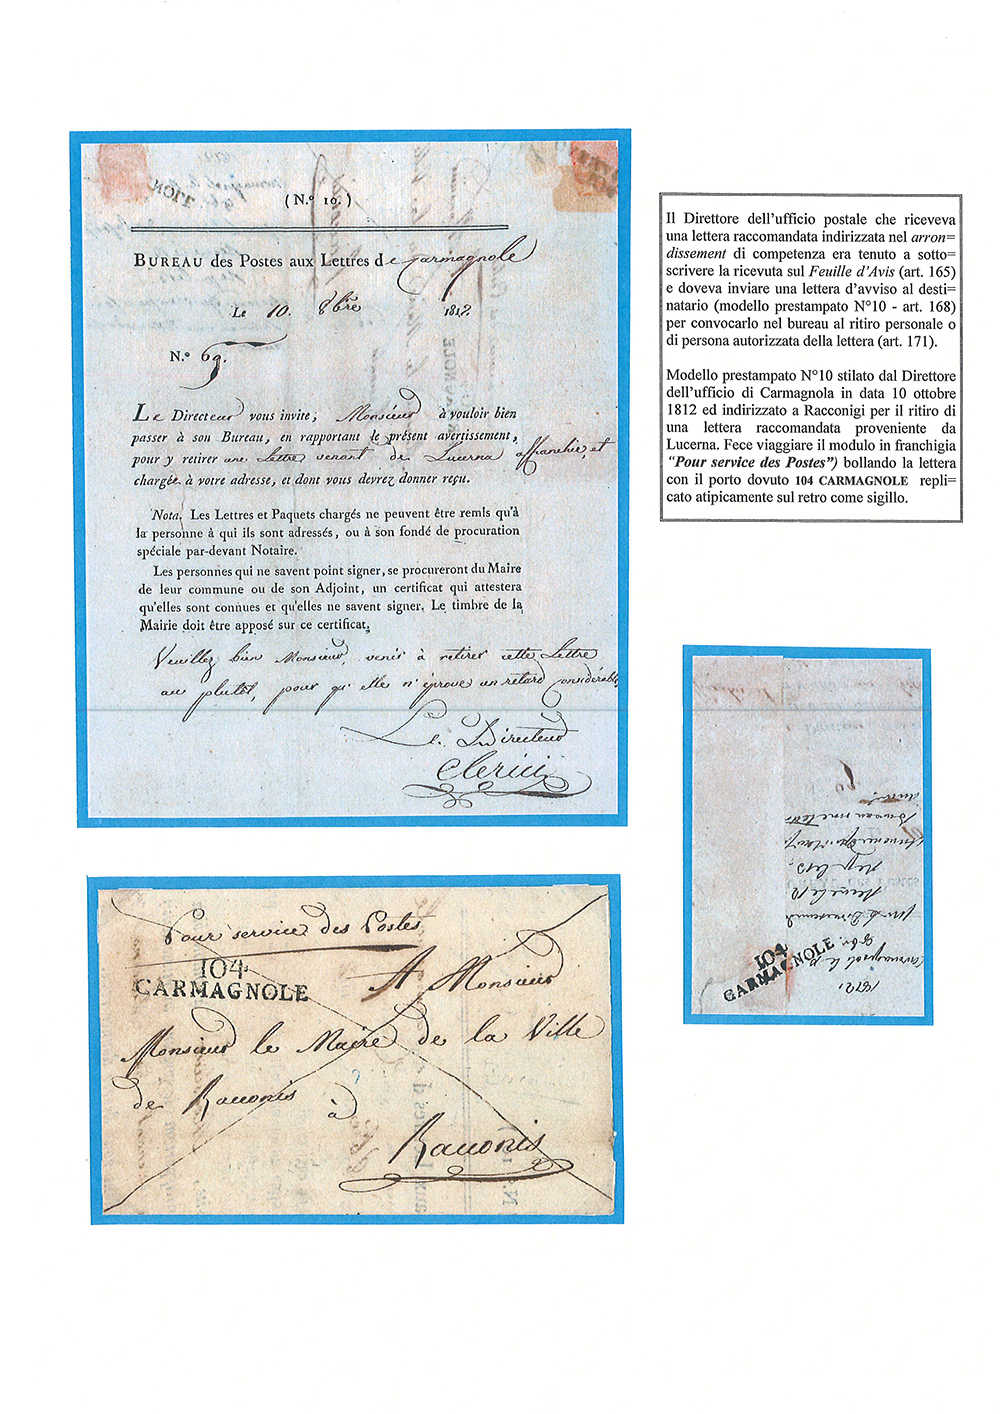 (N.º 10.)
BUREAU des Postes aux Lettres de Carmagnole
Le 10. 8bre 1812.
N.º 69.
Le Directeur vous invite, Monsieur à vouloir bien
passer à son Bureau, en rapportant le présent avertissement,
pour y retirer une Lettre venant de Lucerna affranchie, et
chargée à votre adresse, et dont vous devrez donner reçu.
Nota. Les Lettres et Paquets chargés ne peuvent être remis qu'à
la personne à qui ils sont adressés, ou à son fondé de procuration
spéciale par-devant Notaire.
Les personnes qui ne savent point signer, se procureront du Maire
de leur commune ou de son Adjoint, un certificat qui attestera
qu'elles sont connues et qu'elles ne savent signer. Le timbre de la
Mairie doit être apposé sur ce certificat.
Veuillez bien Monsieur, venir à retirer cette Lettre
au plutôt, pour qu'elle n'éprove un retard considérable
Le Directeur
Clerici
Il Direttore dell'ufficio postale che riceveva
una lettera raccomandata indirizzata nel arron=
dissement di competenza era tenuto a sotto=
scrivere la ricevuta sul Feuille d'Avis (art. 165)
e doveva inviare una lettera d'avviso al desti=
natario (modello prestampato N°10 - art. 168)
per convocarlo nel bureau al ritiro personale o
di persona autorizzata della lettera (art. 171).
Modello prestampato N°10 stilato dal Direttore
dell'ufficio di Carmagnola in data 10 ottobre
1812 ed indirizzato a Racconigi per il ritiro di
una lettera raccomandata proveniente da
Lucerna. Fece viaggiare il modulo in franchigia
"Pour service des Postes") bollando la lettera
con il porto dovuto 104 CARMAGNOLE repli=
cato atipicamente sul retro come sigillo.
Pour service des Postes
104
CARMAGNOLE
A Monsieur
Monsieur le Maire de la Ville
de Raconis
à
Raconis
104
CARMAGNOLE
1812.